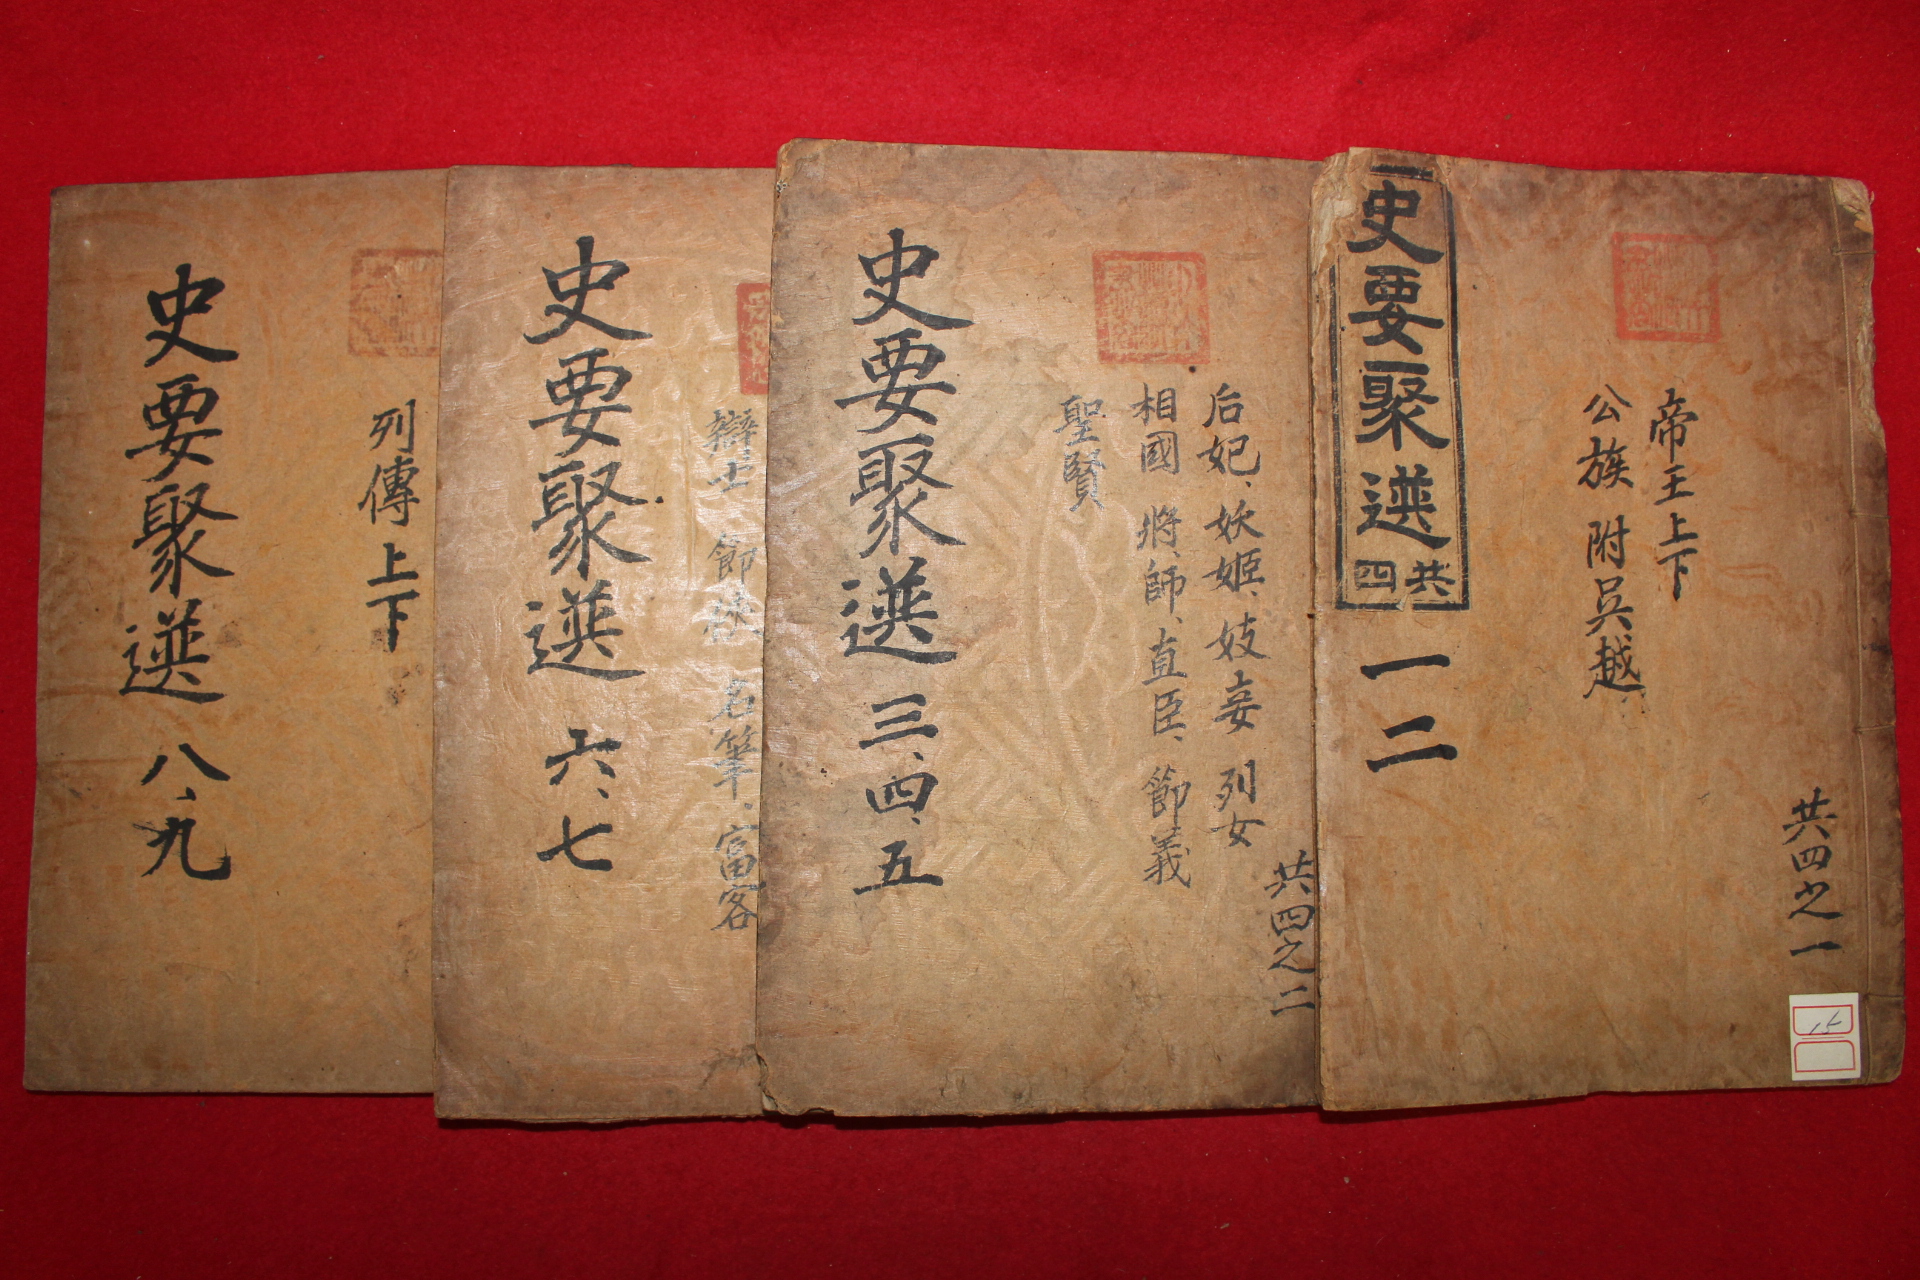 史要聚選 共四
一二
帝王上下
公族 附吳越
共四之一
15
史要聚選 三、四、五
后妃、妖姬、妓妾 列女
相國 將、師、直臣、節義
聖賢
共四之二
史要聚選 六、七
辯士 節俠 名筆、富客
史要聚選 八、九
列傳 上下